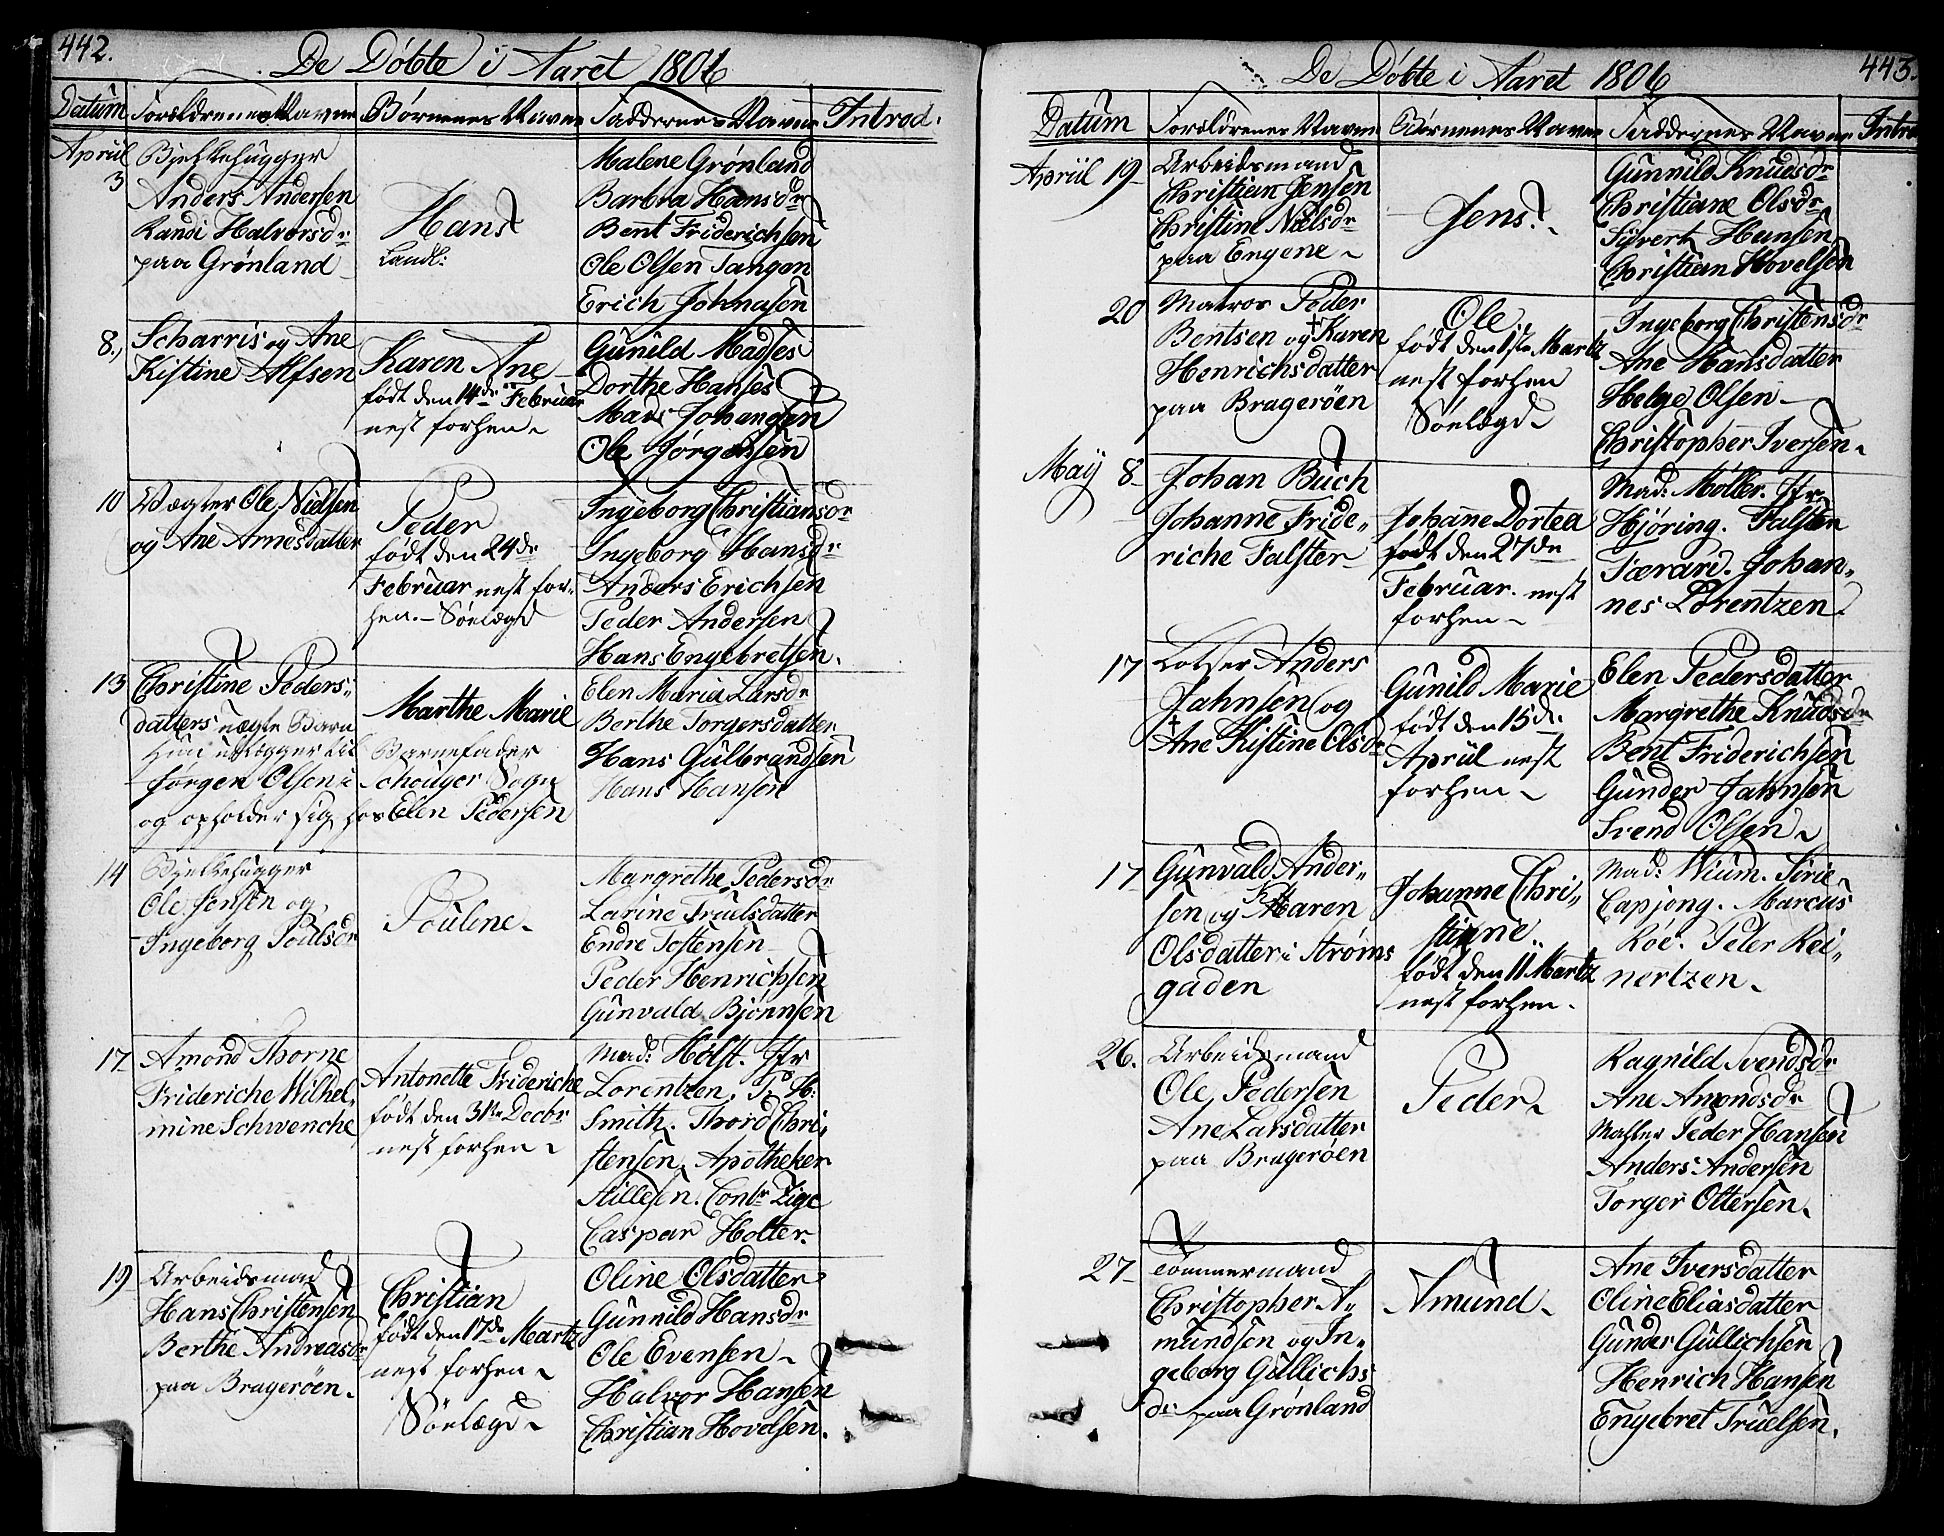 442.
De Döbte i Aaret 1806
Datum Foreldrenes Navne Börnenes Navne Faddernes Navne Introd.
Apriil 3
Bjelkehugger
Anders Andersen
Randi Halvorsdr
paa Grönland
Hans
Landl:
Malene Grönland
Barbra Hansdr
Bent Friderichsen
Ole Olsen Tangen
Erich Johnasen
8.,
Scharris og Ane
Kistine Alfsen
Karen Ane
födt den 14de Februar
nest forhen
Gunild Madses
Dorthe Hanses
Mads Johansen
Ole Jörgensen
10
Vægter Ole Nielsen
og Ane Arnesdatter
Peder
födt den 24de
Februar nest for-
hen. - Söelægd
Ingeborg Christiansdr
Ingeborg Hansdr
Anders Erichsen
Peder Andersen
Hans Engebretsen.
13
Christine Peders-
datters uægte Barn
Hun udlægger til Barnefader
Jörgen Olsen i Schouger Sogn
og opholder sig hos Elen Pedersen
Marthe Marie
Elen Maria Larsdr
Berthe Torgersdatter
Hans Gulbrandsen
Hans Hansen
14
Bjelkehugger
Ole Jensen og
Ingeborg Poulsdr
Pouline
Margrethe Pedersdr
Larine Truulsdatter
Endre Tostensen
Peder Henrichsen
Gunvald Björnsen
17
Amond Thorne
Frideriche Wilhel-
mine Schwenche
Antonette Frideriche
födt den 31te Decbr
nest forhen
Mad: Holst. Jfr
Lorentzen. P: H:
Smith. Thord Chri-
stensen, Apotheker
Stillesen. Contr Zige
Caspar Holter.
19
Arbeidsmad
Hans Christensen
Berthe Andreasdr
paa Brageröen.
Christian
födt den 17de Martz
nest forhen
Söelægd
Oline Olsdatter
Gunnild Hansdr
Ole Evensen
Halvor Hansen
Christian Hovelsen.
443.
De Döbte i Aaret 1806
Datum Foreldrenes Navne Börnenes Navne Faddernes Navne Introd
Apriil 19
Arbeidsmand
Christian Jensen
Christine Nielsdr
paa Engene
Jens.
Gunnild Knudsdr
Christiane Olsdr
Sÿvert Hansen
Christian Hovelsen
20
Matros Peder
Bentsen og Karen
Henrichsdatter
paa Brageröen
Ole
födt den 1ste Martz
nest forhen
Söelægd
Ingeborg Christensdr
Ane Hansdatter
Helge Olsen
Christopher Iversen
Maÿ 8
Johan Buch
Johanne Fride-
riche Falster
Johane Dortea
födt den 27de
Februar. nest
forhen
Mad: Möller. Jfr
Hjöring. Falsten
Færard. Johan-
nes Lorentzen.
17
Lotser Anders
Jahnsen og
Ane Kistine Olsdr
Gunild Marie
födt den 15de
Apriil nest
forhen
Elen Pedersdatter
Margrethe Knudsdr
Bent Friderichsen
Gunder Jahnsen
Svend Olsen
17
Gunvald Ander-
sen og Maren
Olsdatter i Ströms
gaden
Johanne Chri-
stinne
födt den 11 Martz
nest forhen.
Mad: Wium. Sirie
Capjong. Marcus
Roe. Peter Rei-
nertzen.
26.
Arbeidsmand
Ole Pedersen
Ane Larsdatter
paa Brageröen
Peder
Ragnild Svendsdr
Ane Amondsdr
Mahler Peder Hansen
Anders Andersen
Torger Ottersen
27
Tömmermand
Christopher A-
mundsen og In-
geborg Gullichs
dr paa Grönland
Amund
Ane Iversdatter
Oline Eliasdatter
Gunder Gullichsen
Henrich Hansen
Engebret Truelsen.